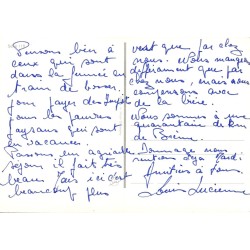 Pensons bien à
ceux qui sont
dans la fumée en
train de bosser
pour payer des Impôts
pour les pauvres
paysans qui sont
en vacances.
Passons un agréable
séjour il fait très
beau. Mais ici c'est
beaucoup plus
vert que par chez
nous. Nous mangeons
différament que par
chez nous, mais nous
compensons avec
de la bière.
Nous sommes à une
quarantaine de km
de
Dommage nous
rentrons déjà Mardi.
Amitiés à tous.
Louis Lucienne